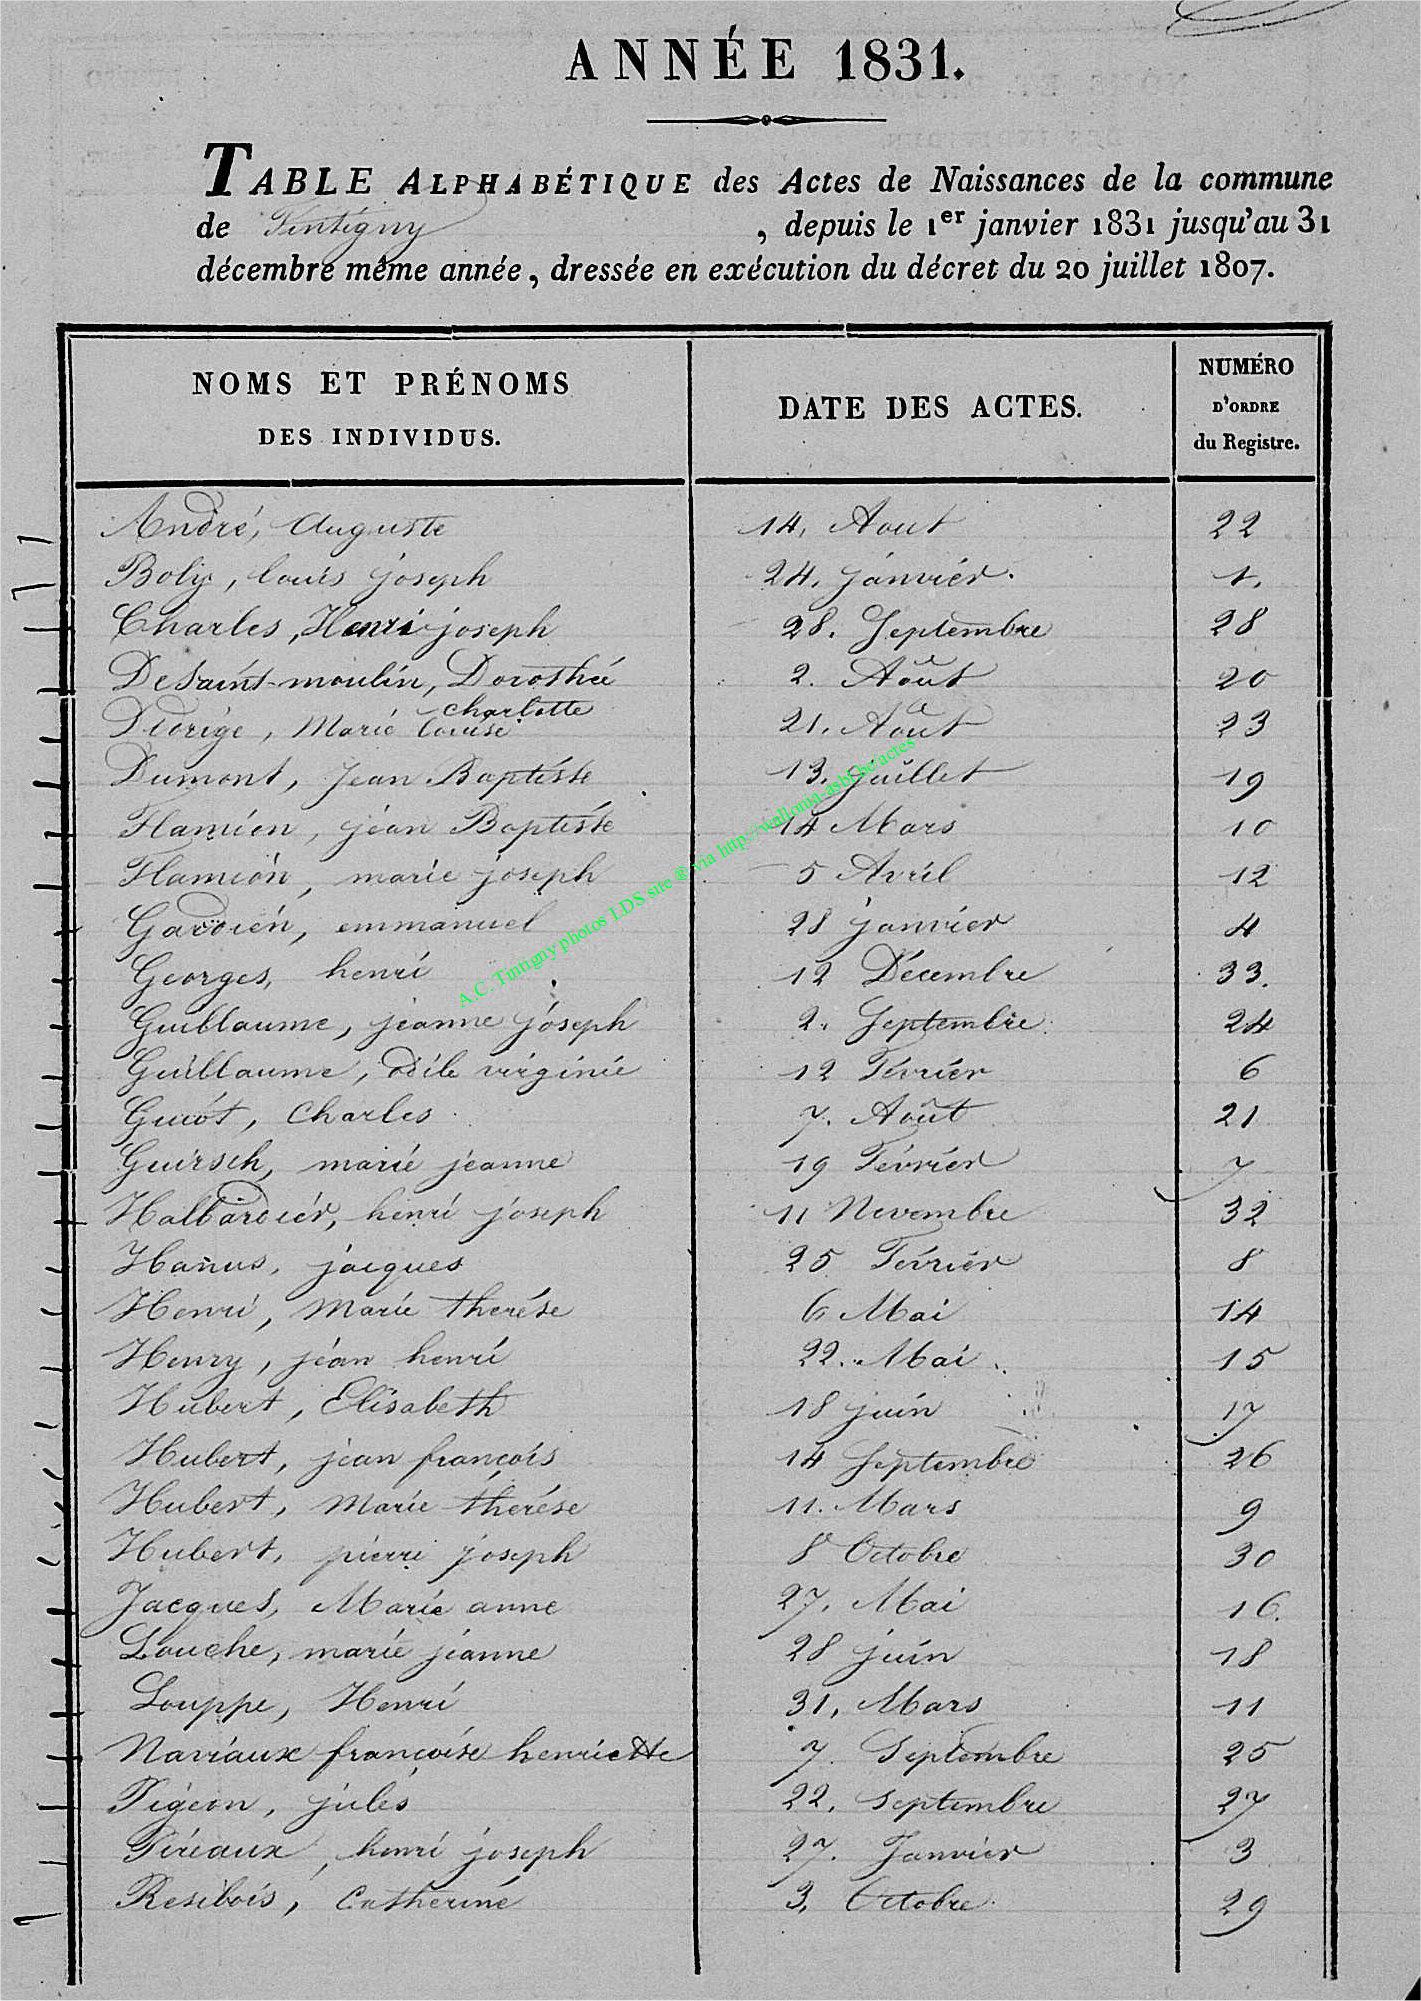 ANNÉE 1831.
TABLE ALPHABÉTIQUE des Actes de Naissances de la commune
de Tintigny , depuis le 1er janvier 1831 jusqu'au 31
décembre même année, dressée en exécution du décret du 20 juillet 1807.
NOMS ET PRÉNOMS
DES INDIVIDUS.
DATE DES ACTES.
NUMÉRO
D'ORDRE
du Registre.
André, Auguste 14, Aout 22
Boly, louis joseph 24, janvier. 1.
Charles, Henri joseph 28. Septembre 28
DeSaint-moulin, Dorothée 2. Août 20
charlotte
Diorige, Marie louise 21. Août 23
Dumont, Jean Baptiste 13. juillet 19
Flamion, jean Baptiste 14 Mars 10
Flamion, marie joseph 5 Avril 12
Gardien, emmanuel 28 janvier 4
Georges, henri 12 Décembre 33.
Guillaume, jeanne joseph 2. Septembre. 24
Guillaume, Odile virginie 12 Février 6
Guiot, Charles. 7. Août 21
Guirsch, marie jeanne 19 Février 7
Halbardier, henri joseph 11 Novembre 32
Hanus, jacques 25 Février 8
Henri, Marie therése 6 Mai 14
Henry, jean henri 22. Mai. 15
Hubert, Elisabeth 18 juin 17
Hubert, jean françois 14 Septembre 26
Hubert, Marie therése 11. Mars 9
Hubert, pierre joseph 8 Octobre 30
Jacques, Marie anne 27. Mai 16.
Louche, marie jeanne 28 juin 18
Louppe, Henri 31, Mars 11
Naviaux françoise henriette 7. Septembre 25
Pigeon, jules 22, Septembre 27
Piréaux, henri joseph 27. Janvier 3
Resibois, Catherine 3, Octobre. 29
A.C. Tintigny photos LDS site ® via http://wallonia-asbl.be/actes